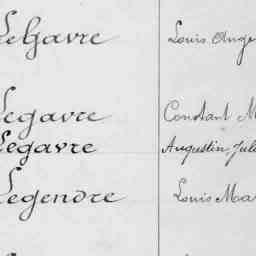 LeGavre Louis Ange
Legavre Constant M
Legavre Augustin, Jule
Legendre Louis Mar